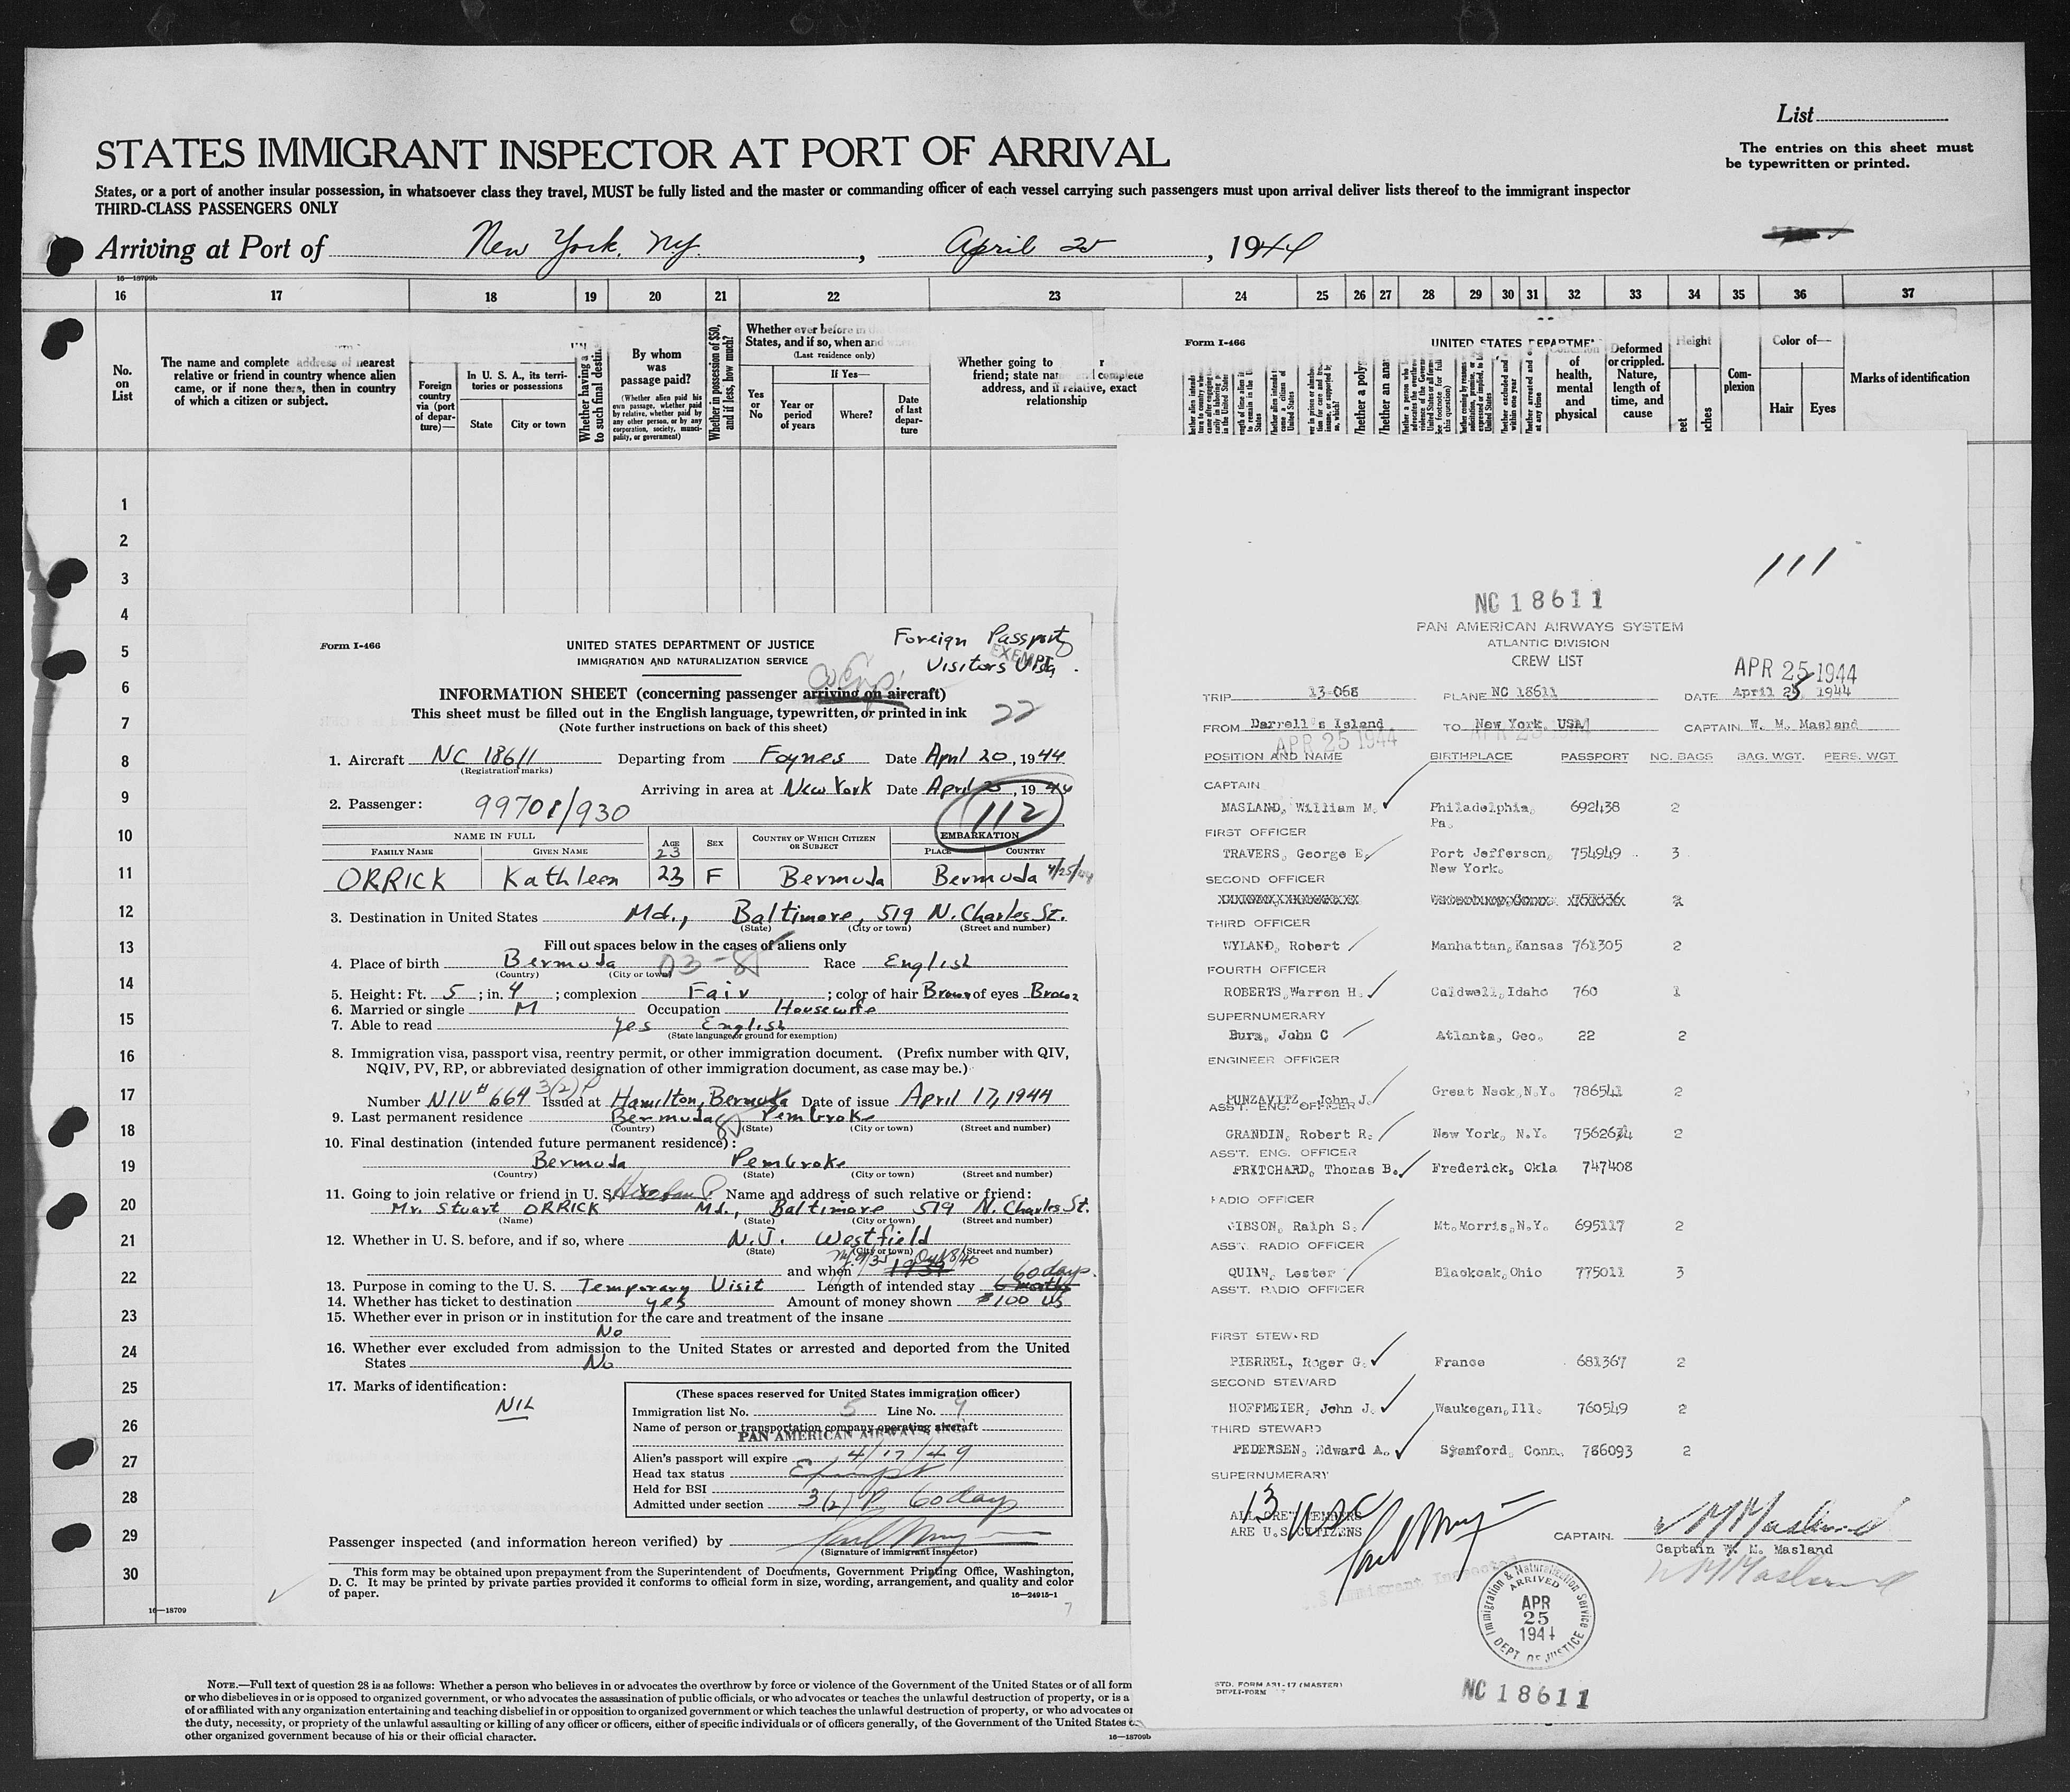 List
STATES IMMIGRANT INSPECTOR AT PORT OF ARRIVAL
The entries on this sheet must
be typewritten or printed.
States, or a port of another insular possession, in whatsoever class they travel, MUST be fully listed and the master or commanding officer of each vessel carrying such passengers must upon arrival deliver lists thereof to the immigrant inspector
THIRD-CLASS PASSENGERS ONLY
Arriving at Port of New York, NY. , April 25 , 1944
16—18709b
16 17 18 19 20 21 22 23 24 25 26 27 28 29 30 31 32 33 34 35 36 37
No.
on
List
The name and complete address of nearest
relative or friend in country whence alien
came, or if none there, then in country
of which a citizen or subject.
Foreign
country
via (port
of depar-
ture)—
In U. S. A., its terri-
tories or possessions
State City or town
Whether having a
to such final destin
By whom
was
passage paid?
(Whether alien paid his
own passage, whether paid
by relative, whether paid by
any other person, or by any
corporation, society, munici-
pality, or government)
Whether in possession of $50,
and if less, how much?
Whether ever before in
States, and if so, when and
(Last residence only)
If Yes—
Yes
or
No
Year or
period
of years
Where?
Date
of last
depar-
ture
Whether going to
friend; state name complete
address, and if relative, exact
relationship
Form I-466
UNITED STATES DEPARTMENT
Condition
of
health,
mental
and
physical
Deformed
or crippled.
Nature,
length of
time, and
cause
Height
Com-
plexion
Color of—
Hair Eyes
Marks of identification
1
2
3
4
5
6
7
8
9
10
11
12
13
14
15
16
17
18
19
20
21
22
23
24
25
26
27
28
29
30
16—18709
Form I-466
UNITED STATES DEPARTMENT OF JUSTICE
IMMIGRATION AND NATURALIZATION SERVICE
Foreign Passport
EXEMPT
Visitors Visa
INFORMATION SHEET (concerning passenger arriving on aircraft)
This sheet must be filled out in the English language, typewritten, or printed in ink
(Note further instructions on back of this sheet)
22
1. Aircraft NC 18611 Departing from Foynes Date April 20, 1944
(Registration marks)
Arriving in area at New York Date April , 1944
2. Passenger: 99701/930
112
NAME IN FULL AGE SEX COUNTRY OF WHICH CITIZEN OR SUBJECT EMBARKATION
FAMILY NAME GIVEN NAME 23 PLACE COUNTRY
ORRICK Kathleen 23 F Bermuda Bermuda 4/25/44
3. Destination in United States Md., Baltimore, 519 N. Charles St.
(State) (City or town) (Street and number)
Fill out spaces below in the cases of aliens only
4. Place of birth Bermuda Race English
(Country) (City or town)
5. Height: Ft. 5 ; in. 4 ; complexion Fair ; color of hair Brown of eyes Brown
6. Married or single M Occupation Housewife
7. Able to read Yes English
(State language or ground for exemption)
8. Immigration visa, passport visa, reentry permit, or other immigration document. (Prefix number with QIV,
NQIV, PV, RP, or abbreviated designation of other immigration document, as case may be.)
Number NIV # 664 3(2) P Issued at Hamilton, Bermuda Date of issue April 17, 1944
9. Last permanent residence Bermuda Pembroke
(Country) (State) (City or town) (Street and number)
10. Final destination (intended future permanent residence):
Bermuda Pembroke
(Country) (State) (City or town) (Street and number)
11. Going to join relative or friend in U. S. Name and address of such relative or friend:
Mr. Stuart ORRICK Md., Baltimore 519 N. Charles St.
(Name) (State) (City or town) (Street and number)
12. Whether in U. S. before, and if so, where N.J. Westfield
(State) (City or town) (Street and number)
and when 1939
60 days.
13. Purpose in coming to the U. S. Temporary Visit Length of intended stay 6 months
14. Whether has ticket to destination yes Amount of money shown $100 US
15. Whether ever in prison or in institution for the care and treatment of the insane
No
16. Whether ever excluded from admission to the United States or arrested and deported from the United
States No
17. Marks of identification:
NIL
(These spaces reserved for United States immigration officer)
Immigration list No. 5 Line No. 9
Name of person or transportation company operating aircraft
PAN AMERICAN AIRWAYS, INC.
Alien's passport will expire 4/17/49
Head tax status Exempt
Held for BSI
Admitted under section 3(2) P 60 days
Passenger inspected (and information hereon verified) by
(Signature of immigrant inspector)
This form may be obtained upon prepayment from the Superintendent of Documents, Government Printing Office, Washington,
D. C. It may be printed by private parties provided it conforms to official form in size, wording, arrangement, and quality and color
of paper.
16—24915-1
7
111
NC 18611
PAN AMERICAN AIRWAYS SYSTEM
ATLANTIC DIVISION
CREW LIST
APR 25 1944
TRIP 13-068 PLANE NC 18611 DATE April 25 1944
FROM Darrell's Island TO New York USA CAPTAIN W. M. Masland
APR 25 1944
POSITION AND NAME BIRTHPLACE PASSPORT NO. BAGS BAG. WGT. PERS. WGT
CAPTAIN
MASLAND, William M. Philadelphia, Pa. 692438 2
FIRST OFFICER
TRAVERS, George E. Port Jefferson, New York. 754949 3
SECOND OFFICER
THIRD OFFICER
WYLAND, Robert Manhattan, Kansas 761305 2
FOURTH OFFICER
ROBERTS, Warren H. Caldwell, Idaho 760 1
SUPERNUMERARY
Burn, John C Atlanta, Geo. 22 2
ENGINEER OFFICER
PUNZAVITZ, John J. Great Neck, N.Y. 786541 2
ASS'T. ENG. OFFICER
GRANDIN, Robert R. New York, N.Y. 2
ASS'T. ENG. OFFICER
PRITCHARD, Thomas B. Frederick, Okla 747408
RADIO OFFICER
GIBSON, Ralph S. Mt. Morris, N.Y. 695117 2
ASS'T. RADIO OFFICER
QUINN, Lester Blackoak, Ohio 775011 3
ASS'T. RADIO OFFICER
FIRST STEWARD
PIERREL, Roger G. France 681367 2
SECOND STEWARD
HOFFMEIER, John J. Waukegan, Ill. 760549 2
THIRD STEWARD
PEDERSEN, Edward A. Stamford, Conn. 786093 2
SUPERNUMERARY
13 USC
ALL CREW MEMBERS
ARE U.S. CITIZENS
CAPTAIN. W M Masland
Captain W. M. Masland
W M Masland
U.S. Immigrant Inspector
Immigration & Naturalization Service
ARRIVED
APR
25
1944
DEPT. OF JUSTICE
NC 18611
STD. FORM A31-17 (MASTER)
DUPLI-FORM
NOTE.—Full text of question 28 is as follows: Whether a person who believes in or advocates the overthrow by force or violence of the Government of the United States or of all form
or who disbelieves in or is opposed to organized government, or who advocates the assassination of public officials, or who advocates or teaches the unlawful destruction of property, or is a
of or affiliated with any organization entertaining and teaching disbelief in or opposition to organized government or which teaches the unlawful destruction of property, or who advocates or
the duty, necessity, or propriety of the unlawful assaulting or killing of any officer or officers, either of specific individuals or of officers generally, of the Government of the United States
other organized government because of his or their official character.
16—18709b